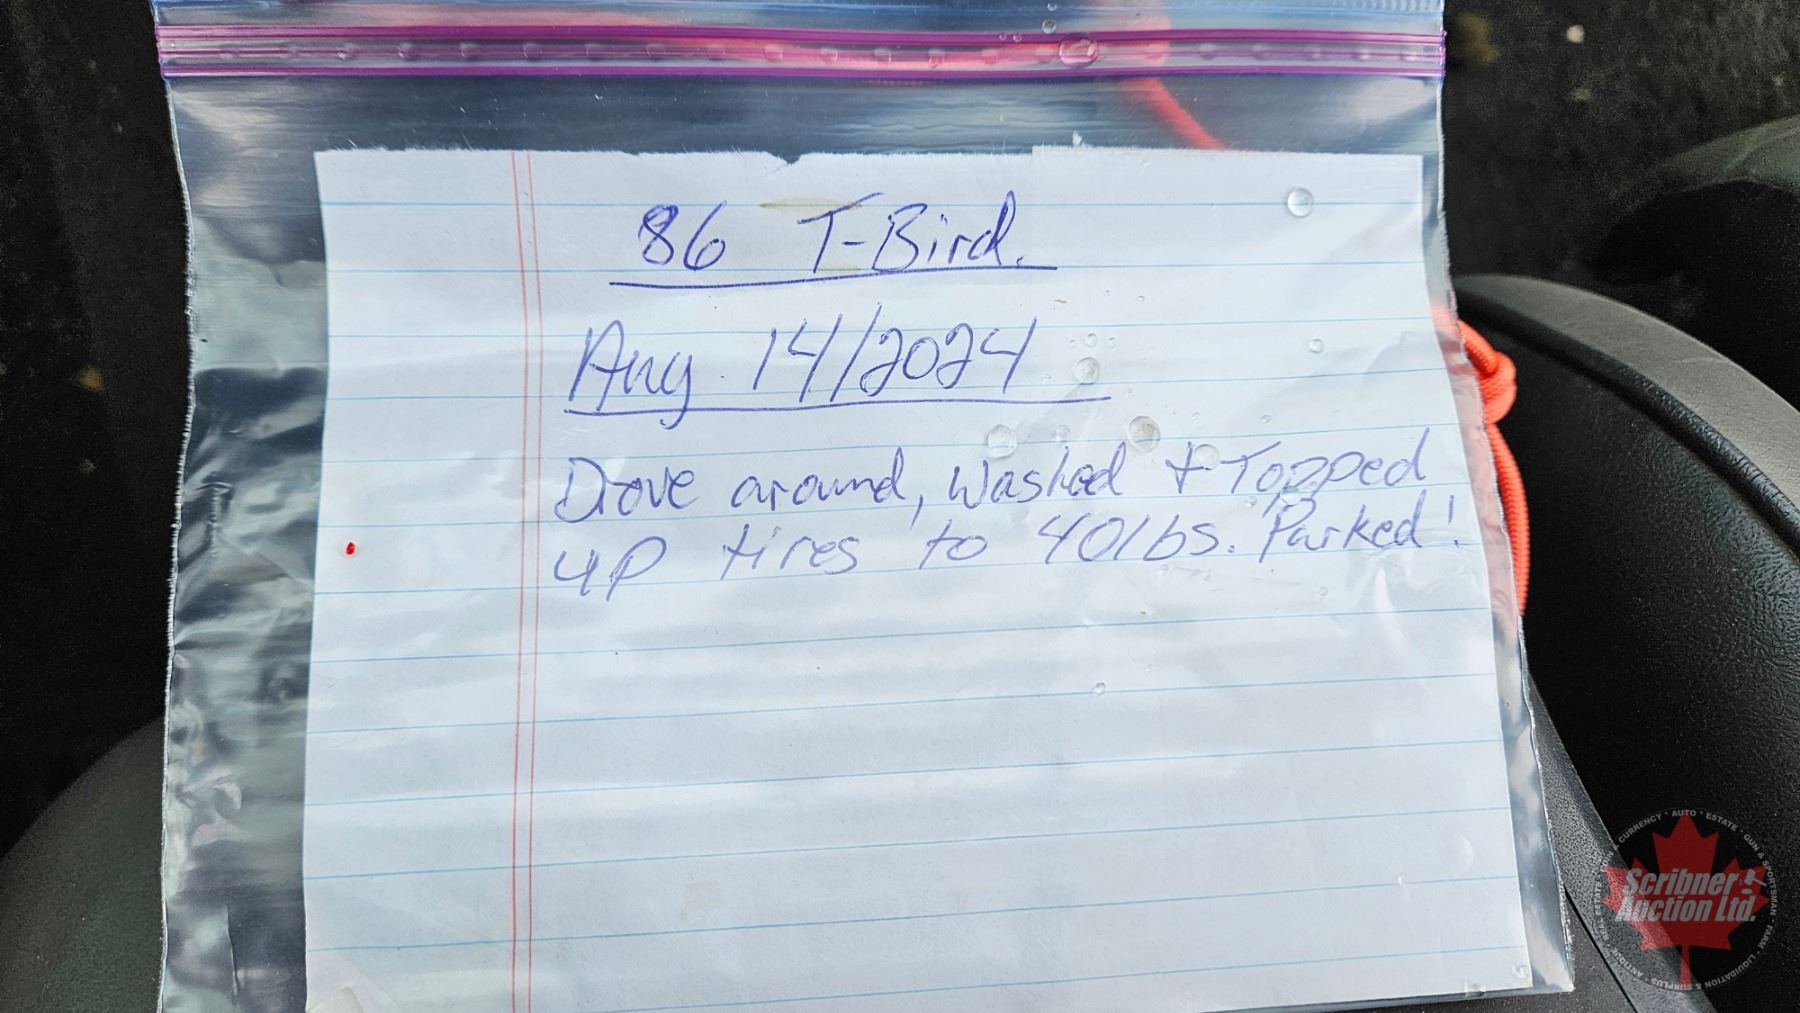 86 T-Bird.
Aug 14/2024
Drove around, washed & Topped
up tires to 40lbs. Parked!
Scribner's
Auction Ltd.
CURRENCY • AUTO • ESTATE • GUN & SPORTSMAN • FARM • LIQUIDATION & SURPLUS • ANTIQUE